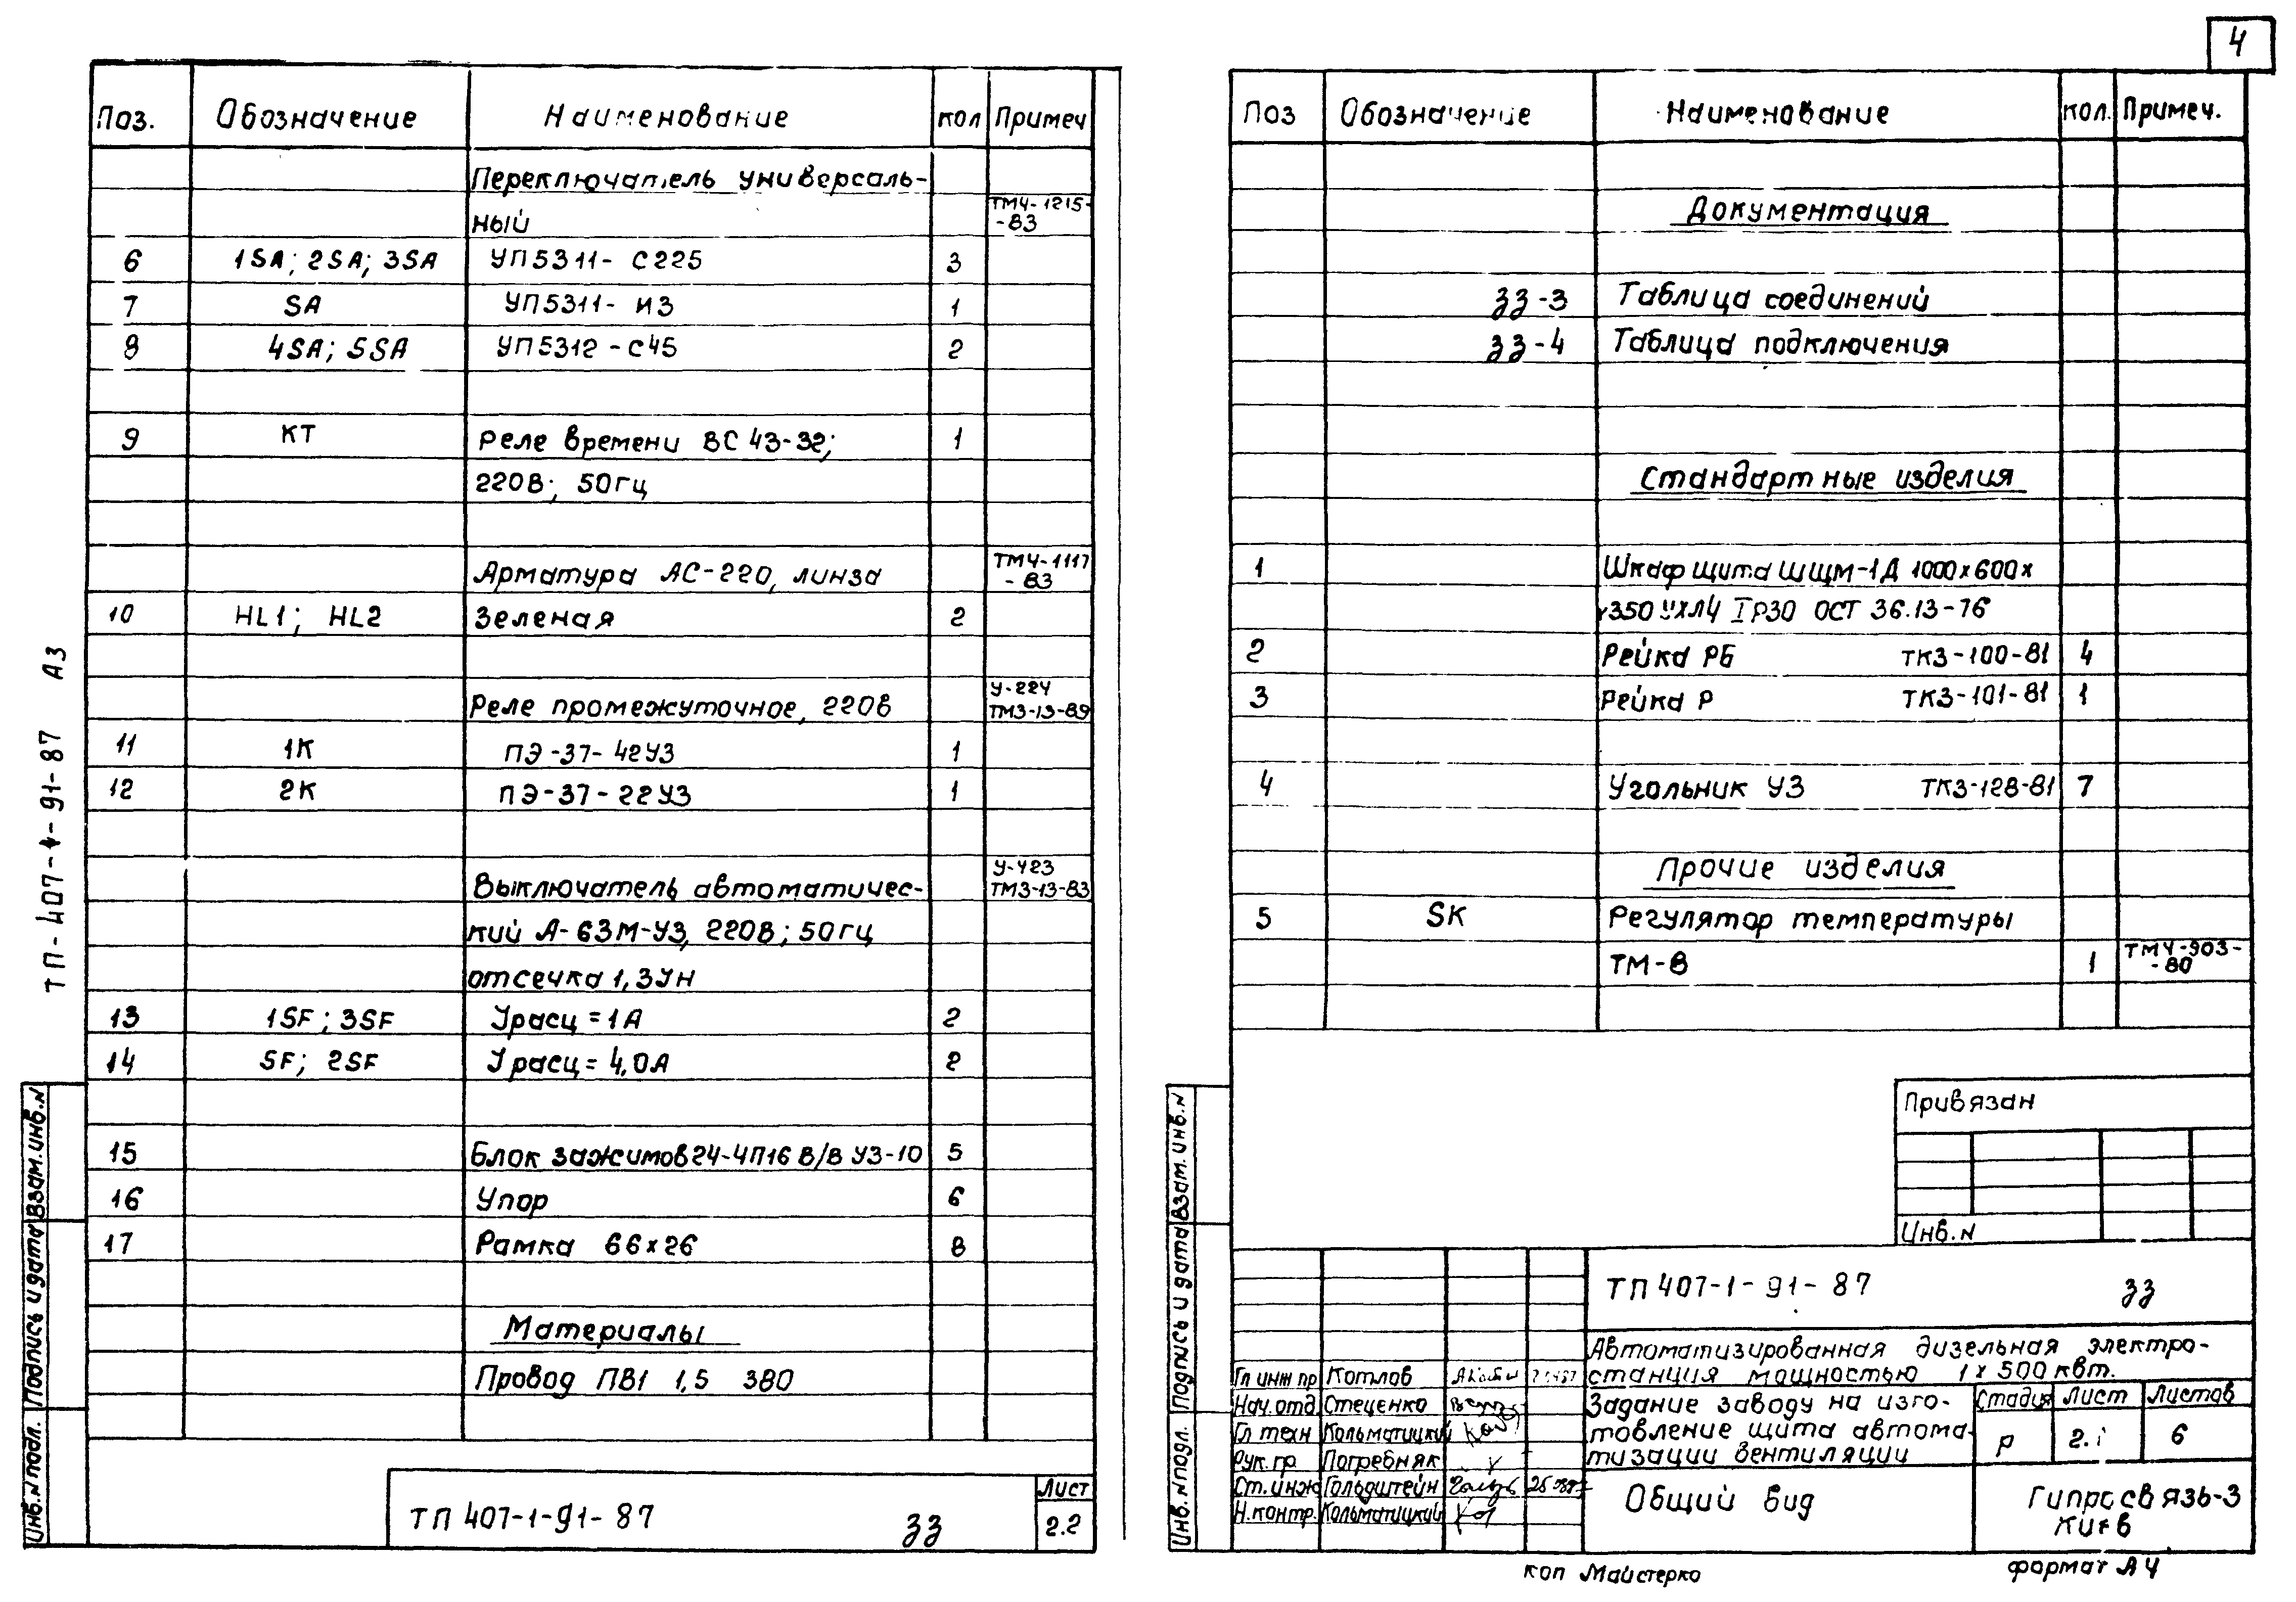 4
Поз. Обозначение Наименование кол Примеч
Переключатель универсаль-
ный ТМ4-1215-
-83
6 1SA; 2SA; 3SA УП5311- С225 3
7 SA УП5311- И3 1
8 4SA; 5SA УП5312-С45 2
9 КТ Реле времени ВС 43-32; 1
220В; 50гц
Арматура АС-220, линза ТМ4-1117
-83
10 HL1; HL2 зеленая 2
Реле промежуточное, 220в У-224
ТМ3-13-89
11 1К ПЭ-37-42У3 1
12 2К ПЭ-37-22У3 1
Выключатель автоматичес- У-423
ТМ3-13-83
кий А-63М-У3, 220В; 50гц
отсечка 1,3Ун
13 1SF; 3SF Урасц = 1А 2
14 SF; 2SF Урасц = 4,0А 2
15 Блок зажимов 24-4П16 В/В У3-10 5
16 Упор 6
17 Рамка 66х26 8
Материалы
Провод ПВ1 1,5 380
ТП 407-1-91-87 ЗЗ Лист
2.2
ТП-407-1-91-87 А3
Инв.N подл. Подпись и дата Взам.инв.N
Поз Обозначение Наименование кол. Примеч.
Документация
ЗЗ-3 Таблица соединений
ЗЗ-4 Таблица подключения
Стандартные изделия
1 Шкаф щита ЩШМ-1Д 1000х600х
х350 УХЛ4 IР30 ОСТ 36.13-76
2 Рейка РБ ТК3-100-81 4
3 Рейка Р ТК3-101-81 1
4 Угольник У3 ТК3-128-81 7
Прочие изделия
5 SK Регулятор температуры
ТМ-8 1 ТМ4-903-
-80
Привязан
Инв.N
Инв.N подл. Подпись и дата Взам.инв.N
ТП 407-1-91-87 ЗЗ
Автоматизированная дизельная электро-
станция мощностью 1х500 квт.
Гл инж пр Котлов
Нач.отд. Стеценко
Гл техн Кольматицкий
Рук.гр Погребняк
Ст.инж Гольдштейн
Н.контр. Кольматицкий
Задание заводу на изго-
товление щита автома-
тизации вентиляции
Стадия Лист Листов
р 2.1 6
Общий вид
Гипросвязь-3
Киев
коп Майстерко
формат А4